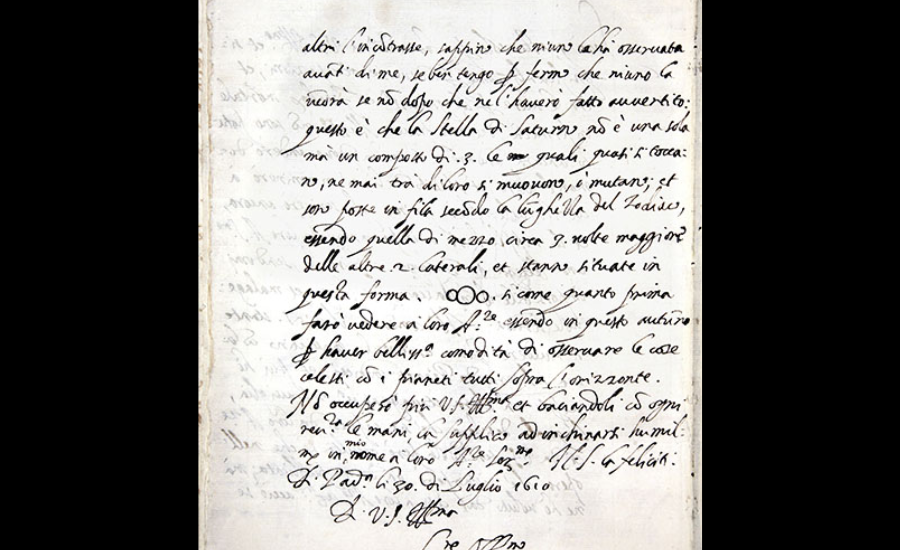 altri l'incõtrasse, sappino che niuno la ha osservata
avãti di me, se ben tengo p fermo che niuno la
vedrà se nõ dopo che ne l'haverò fatto avvertito:
questo è che la Stella di Saturno nõ è una sola
mà un composto di .3. le quali quasi si tocca-
no, ne mai trà di loro si muovono, ò mutano; et
son poste in fila secõdo la lũghezza del Zodiaco,
essendo quella di mezzo circa 3. volte maggiore
delle altre 2. laterali, et stanno situate in
questa forma . oOo. si come quanto prima
farò vedere à loro A.ze essendo in questo autuno
p haver belliss.a comodità di osservare le cose
celesti cõ i pianeti tutti sopra l'orizzonte.
Nõ occuperò più V.S. Ill.ma et baciandoli cõ ogni
rev.za le mani, la supplico ad inchinarsi humil-
m.e in mio nome a loro A.ze Ser.me N.S. la feliciti.
Di Pad.a li 30. di Luglio 1610
Di V.S. Ill.ma